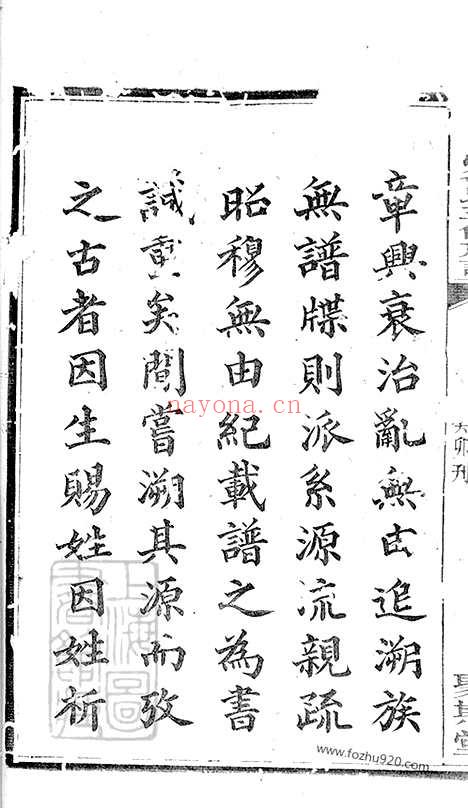 章興衰治亂無由追溯族
無譜牒則派系源流親疏
昭穆無由紀載譜之為書
誠重矣間嘗溯其源而攷
之古者因生賜姓因姓析
聚其堂
nayona.cn
上海圖
www.fozhu920.com